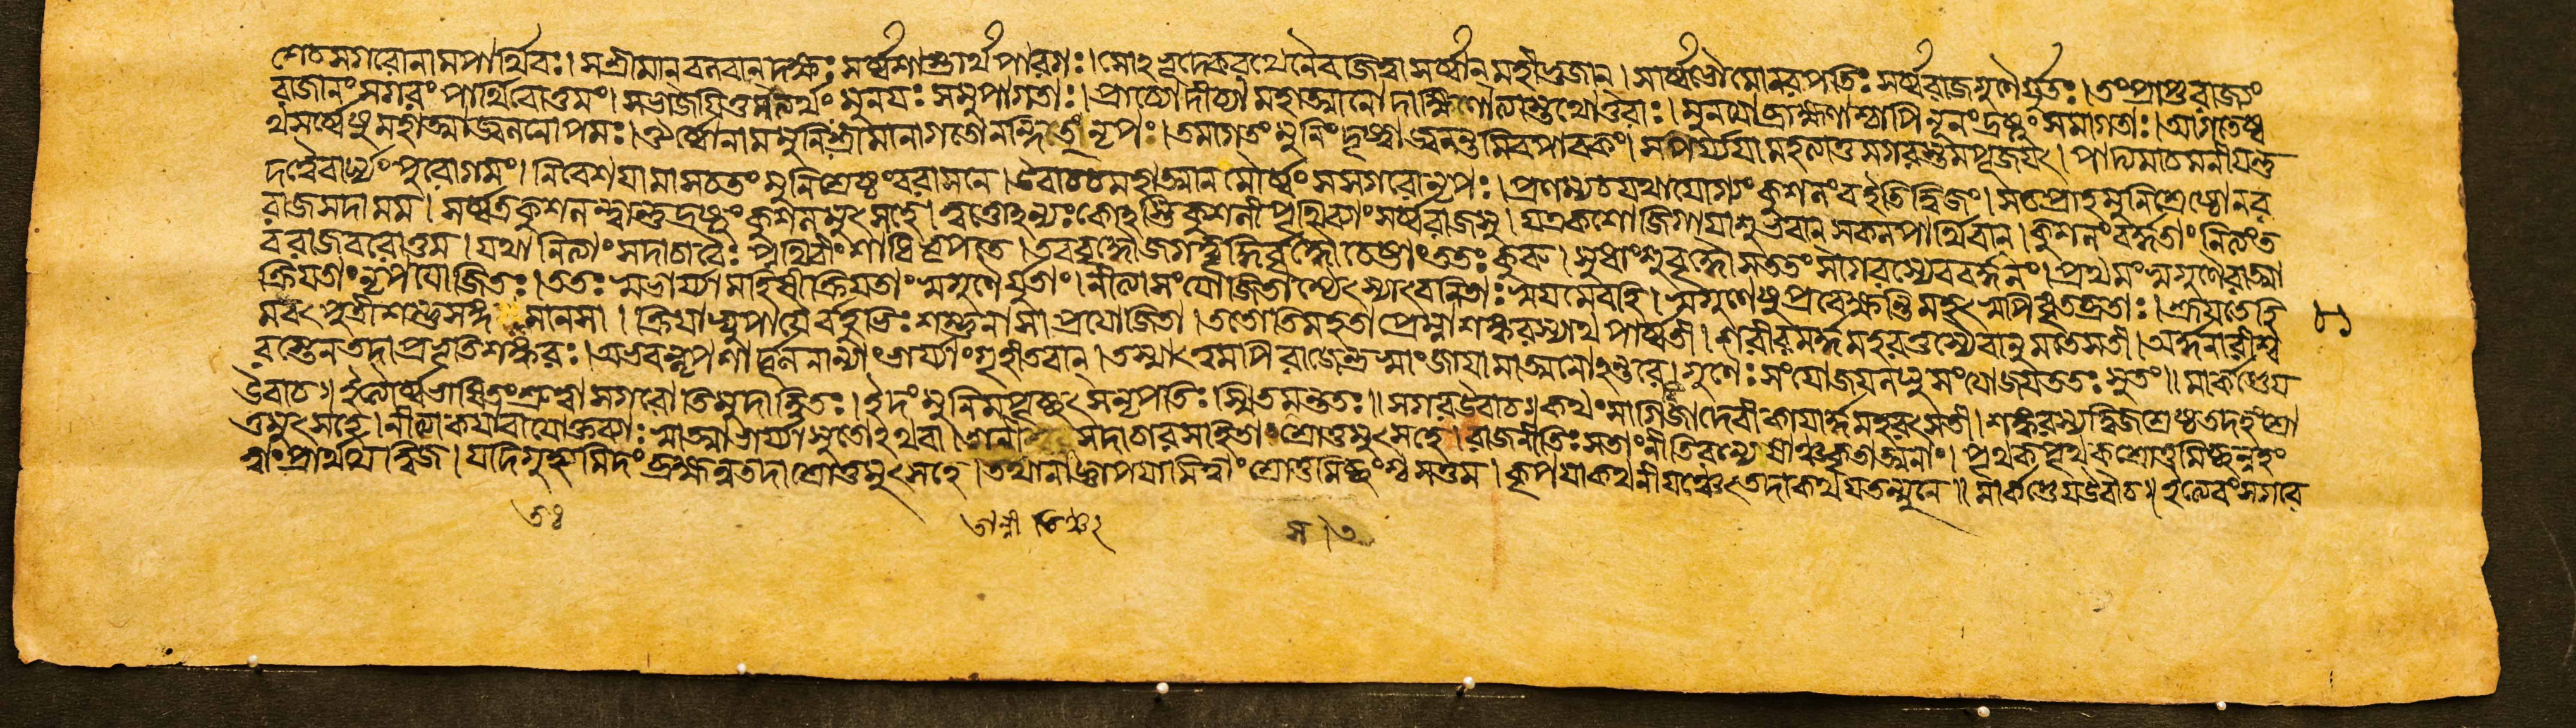 শেচসগরোনামপার্থিবঃ। সশ্রীমান্বলবান্দক্ষঃ সর্ব্বশাস্ত্রার্থপারগঃ। সোঽভূদেকরথেনৈবজিত্বাসর্ব্বান্মহীভুজান্। সার্ব্বভৌমোনরপতিঃ সর্ব্বরাজগুণৈর্যুতঃ। তংপ্রাপ্তরাজ্যং
রাজানং সগরং পার্থিবোত্তমং। সভাজয়িতুমত্যর্থং মুনয়ঃ সমুপাগতাঃ। প্রাচ্যোদীচ্যামহাত্মানোদাক্ষিণাত্যাস্তথোত্তরাঃ। মুনয়োব্রাহ্মণাশ্চাপিনূনংদ্রষ্টুং সমাগতাঃ। আগতেষ্ব
থসর্ব্বেষুমহাত্মাজ্বলনোপমঃ। ঔর্ব্বোনামমুনিঃশ্রীমানাগতোনন্দিতুং নৃপং। তমাগতংমুনিংদৃষ্ট্বাজ্বলন্তমিবপাবকং। সপর্য্যয়ামহত্যাতুসগরস্তমপূজয়ৎ। পাদ্যমাচমনীয়ন্তু
দত্বৈবার্ঘ্যং পুরোগমং। নিবেশয়ামাসচতং মুনিশ্রেষ্ঠং বরাসনে। উবাচচমহাত্মানমৌর্ব্বং সসগরোনৃপঃ। প্রণম্যচযথাযোগ্যং কুশলং বইতিদ্বিজং। সচপ্রাহমুনিশ্রেষ্ঠোনর
রাজসদামম। সর্ব্বত্রকুশলন্ত্বান্তুদ্রষ্টুং কুশলমুৎসহে। ত্বত্তোঽন্যঃ কোঽস্তিকুশলীপৃথিব্যাং সর্ব্বরাজসু। যত্রকশোজিগায়াশুভবান্সকলপার্থিবান্। কুশলংবর্দ্ধতাং নিত্যংত
বরাজবরোত্তম। যথানিত্যং সদাচারৈঃ পৃথিবীং শাধিভূপতে। তববৃদ্ধৌজগদ্বৃদ্ধির্বৃদ্ধৌচেষ্টাং ততঃ কুরু। সুধাংশুবৃদ্ধৌসততং সাগরস্যেববর্দ্ধনং। প্রথমং স্বগুণৈরাত্মা
ক্রিয়তাং নৃপযোজিতঃ। ততঃ স্বভার্য্যামহিষীক্রিয়তাং স্বগুণৈর্যুতা। নীত্যাসংযোজিতাশ্চেৎস্যাৎবনিতাঃ স্বয়মেবহি। স্বগুণেষুপ্রবেক্ষন্তিমহৎস্বপিধৃতব্রতাঃ। শ্রূয়তেহি
মবৎপুত্রীশম্ভুসঙ্গ মানসা। ক্রিয়াভ্যুপায়ৈর্বহুভিঃ শম্ভুনাসাপ্রযোজিতা। ততোতিমহতাপ্রেম্নাশঙ্করস্যাথপার্ব্বতী। শরীরমর্দ্ধমহরত্তস্যৈবানুমতেসতী। অর্দ্ধনারীশ্ব
রস্তেনতদাপ্রভৃতিশঙ্করঃ। অভবন্নৃপশার্দ্দূলনান্যাং ভার্য্যাং গৃহীতবান্। তস্মাৎত্বমপিরাজেন্দ্রস্বাং জায়ামাত্মনোঽন্তরে। গুণৈঃ সংযোজয়লঘুসংযোজয়ততঃ সুতং॥ মার্কণ্ডেয়
উবাচ॥ ইত্যৌর্ব্বভাষিতংশ্রুত্বাসগরোতিমুদান্বিতঃ। ইদংমুনিমপৃচ্ছৎসনৃপতিঃ স্মিতমন্ততঃ॥ সগরউবাচ॥ কথংসাগিরিজাদেবীকায়ার্দ্ধমহরৎসতী। শঙ্করস্যদ্বিজশ্রেষ্ঠতদহংশ্রো
তুমুৎসহে। নীত্যাকয়াবাযোক্তব্যাঃ স্বাত্মাভার্য্যাসুতোঽথবা। সদাচারসহিতাং শ্রোতুমুৎসহে। রাজনীতিঃ সতাং নীতিরন্যেষাঞ্চকৃতাত্মনাং। পৃথক্পৃথক্শ্রোতুমিচ্ছন্নহং
ত্বাংপ্রার্থয়েদ্বিজ। যদিগুহ্যমিদংব্রহ্মন্নতদাশ্রোতুমুৎসহে। শ্রোতুমিচ্ছংশ্চসত্তম। কৃপয়াকথনীয়ঞ্চেৎতদাকথয়তন্মুনে॥ মার্কণ্ডেয়উবাচ॥ ইত্যেবংসগর
৮১